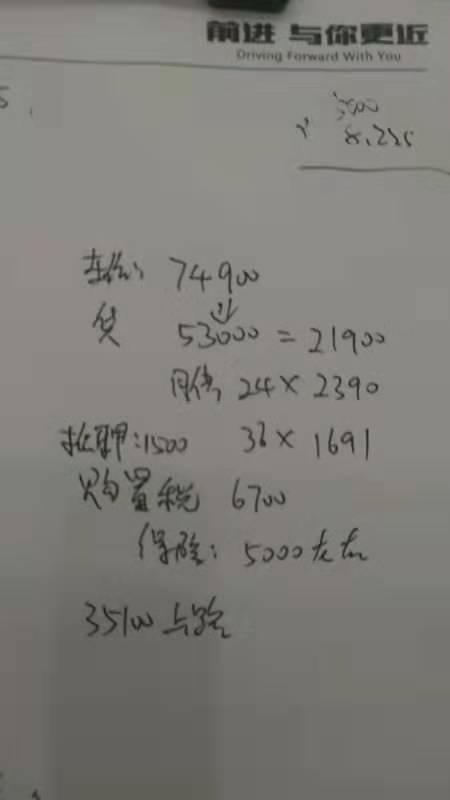 前进 与你更近
Driving Forward With You
5.
车价: 74900
贷 53000 = 21900
月供 24 × 2390
抵押:1500 36 × 1691
购置税 6700
保险: 5000左右
35100上路